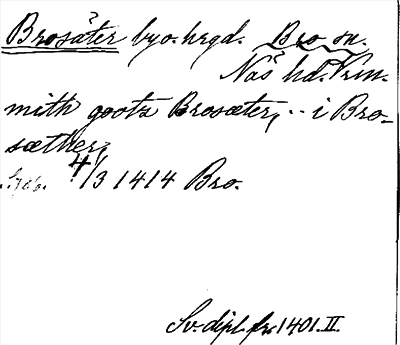 Brosäter by o. hrgd. Bro sn.
Näs hd. Vrm.
mith gootz Brosæter, .. i Bro-
sæther,
4/3 1414 Bro.
Sv. dipl. fr. 1401. II.